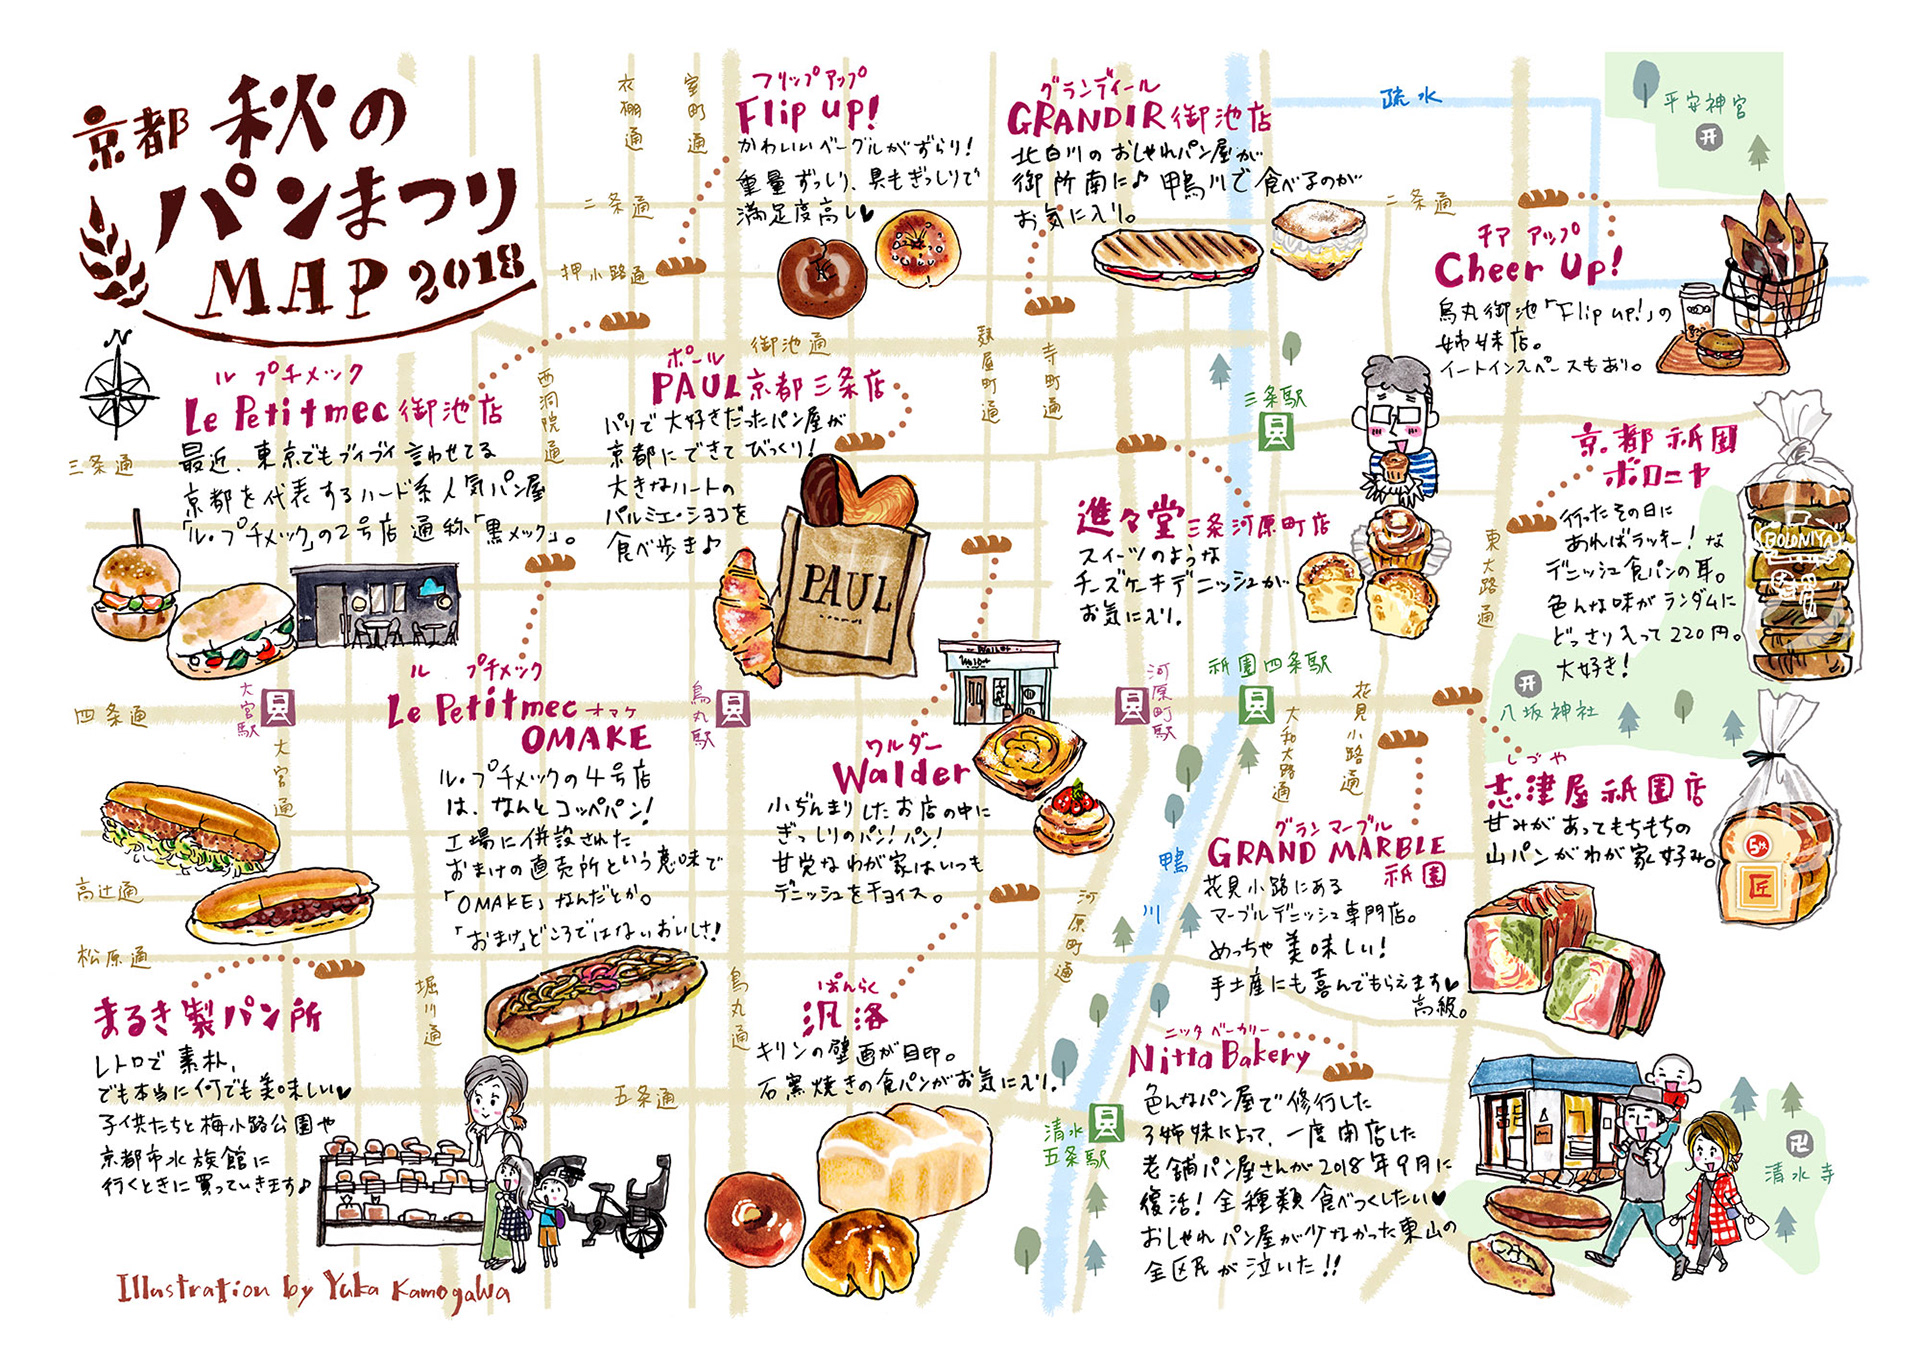 京都 秋の
パンまつり
MAP 2018
N
衣棚通
室町通
二条通
押小路通
御池通
西洞院通
麩屋町通
寺町通
三条通
四条通
高辻通
松原通
五条通
大宮通
堀川通
烏丸通
河原町通
大和大路通
花見小路通
東大路通
二条通
疏水
鴨川
平安神宮
八坂神社
清水寺
三条駅
祇園四条駅
河原町駅
烏丸駅
大宮駅
清水
五条駅
フリップアップ
Flip up!
かわいいベーグルがずらり!
重量ずっしり、具もぎっしりで
満足度高し♥
グランディール
GRANDIR 御池店
北白川のおしゃれパン屋が
御所南に♪ 鴨川で食べるのが
お気に入り。
チアアップ
Cheer Up!
烏丸御池「Flip up!」の
姉妹店。
イートインスペースもあり。
ル プチメック
Le Petitmec 御池店
最近、東京でもブイブイ言わせてる
京都を代表するハード系人気パン屋
「ル・プチメック」の2号店通称「黒メック」。
ポール
PAUL 京都三条店
パリで大好きだったパン屋が
京都にできてびっくり!
大きなハートの
パルミエ・ショコを
食べ歩き♪
PAUL
進々堂 三条河原町店
スイーツのような
チーズケーキデニッシュが
お気に入り。
京都祇園
ボロニヤ
行ったその日に
あればラッキー!な
デニッシュ食パンの耳。
色んな味がランダムに
どっさり入って220円。
大好き!
BOLONIYA
ル プチメック
Le Petitmec オマケ
OMAKE
ル・プチメックの4号店
は、なんとコッペパン!
工場に併設された
おまけの直売所という意味で
「OMAKE」なんだとか。
「おまけ」どころではないおいしさ!
Walder
ワルダー
Walder
小ぢんまりしたお店の中に
ぎっしりのパン!パン!
甘党なわが家はいつも
デニッシュをチョイス。
グランマーブル
GRAND MARBLE
祇園
花見小路にある
マーブルデニッシュ専門店。
めっちゃ美味しい!
手土産にも喜んでもらえます♥
高級。
しづや
志津屋 祇園店
甘みがあってもちもちの
山パンがわが家好み。
匠
まるき製パン所
レトロで素朴、
でも本当に何でも美味しい♥
子供たちと梅小路公園や
京都市水族館に
行くときに買っていきます♪
ぱんらく
汎洛
キリンの壁画が目印。
石窯焼きの食パンがお気に入り。
ニッタベーカリー
Nitta Bakery
色んなパン屋で修行した
3姉妹によって、一度閉店した
老舗パン屋さんが2018年9月に
復活!全種類食べつくしたい♥
おしゃれパン屋が少なかった東山の
全区民が泣いた!!
Illustration by Yuka Kamogawa